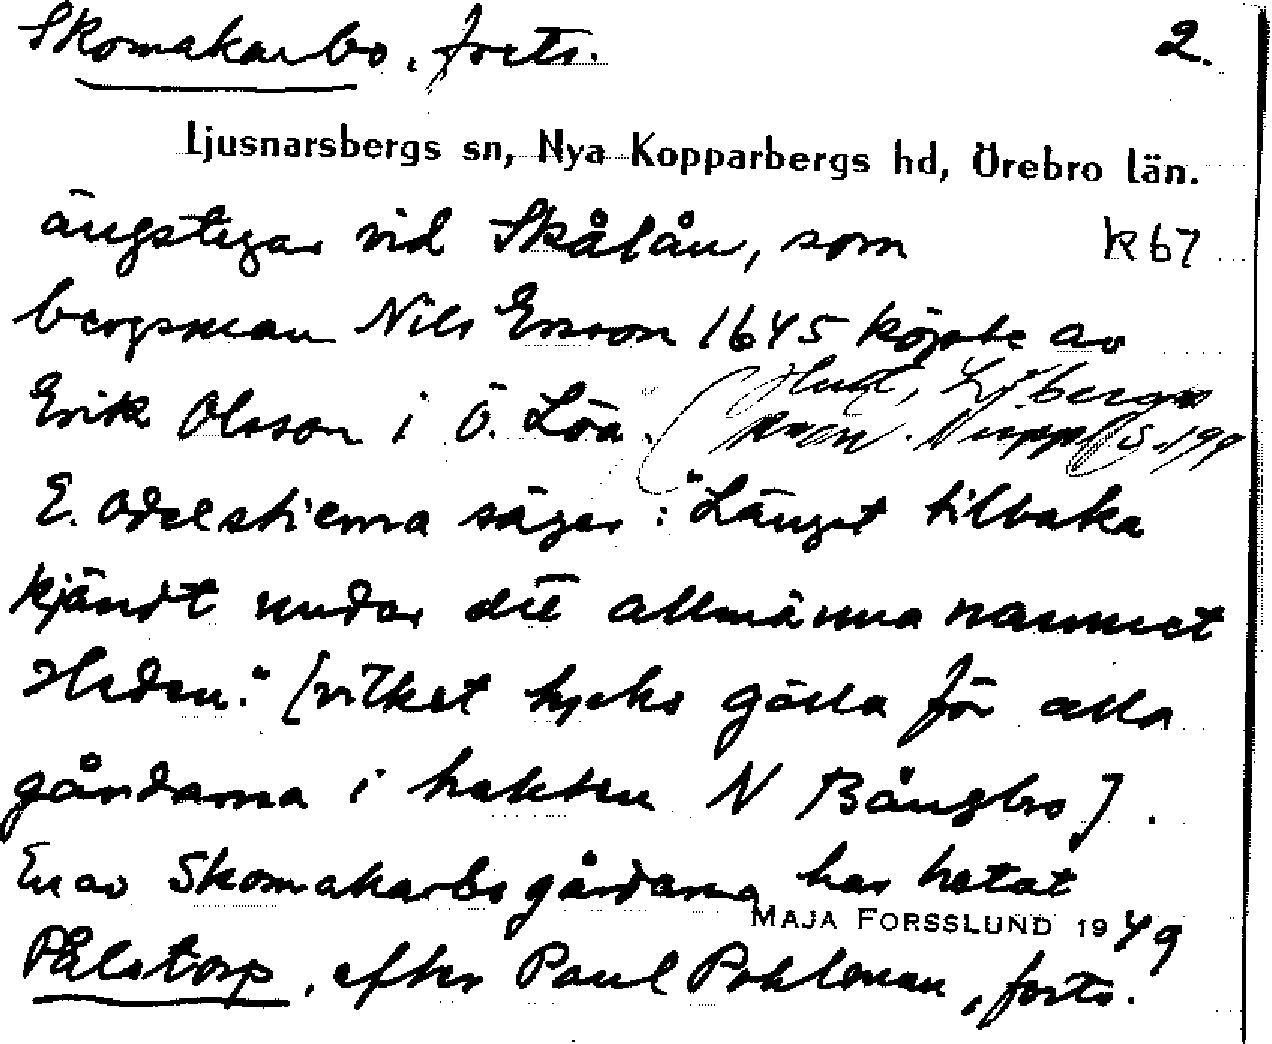 Skomakarbo, forts. 2.
Ljusnarsbergs sn, Nya Kopparbergs hd, Örebro län.
ängstegar vid Skålån, som k 67
bergsman Nils Ersson 1645 köpte av
Erik Olsson i Ö. Löa. (Hult, Lj.bergs
s. 199
E. Odelstierna säger: "Längst tilbaka
kjändt under det allmänna namnet
Heden." [vilket tycks gälla för alla
gårdarna i trakten N Bångbro].
En av Skomakarbogårdarna har hetat
MAJA FORSSLUND 1949
Pålstorp, efter Paul Pohlman, forts.